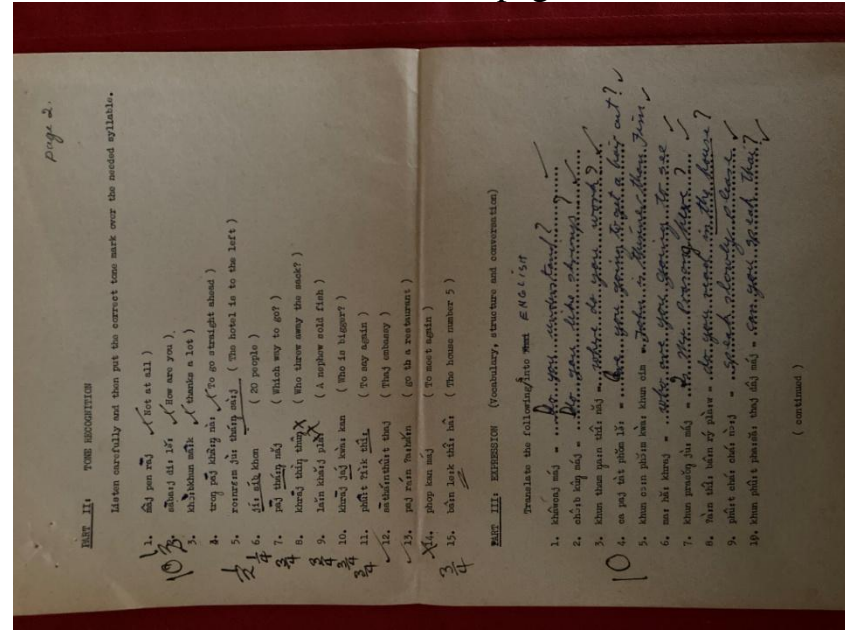 page 2.
PART II: TONE RECOGNITION
Listen carefully and then put the correct tone mark over the needed syllable.
1. mâj pen raj ( Not at all )
2. sabaːj diː lɤ̌ː ( How are you )
3. khɔ̀ːbkhun mâːk ( thanks a lot )
4. troŋ paj khâːŋ nâː ( To go straight ahead )
5. rooŋrɛɛm jùː thaːŋ saːj ( The hotel is to the left )
6. jîː sìb khon ( 20 people )
7. paj thaːŋ nǎj ( Which way to go? )
8. khraj thîŋ thuŋ ( Who threw away the sack? )
9. lǎːn khǎːj plaː ( A nephew sold fish )
10. khraj jaj kwàː kan ( Who is bigger? )
11. phûːt ʔìːk thiː ( To say again )
12. sathǎːnthûːt thaj ( Thaj embassy )
13. paj ráːn ʔaːhǎːn ( go th a restaurant )
14. phop kan màj ( To meet again )
15. bâːn lêːk thîː hâː ( The house number 5 )
10½
½
¼
¾
¾
¾
¾
¾
¾
PART III: EXPRESSION (Vocabulary, structure and conversation)
Translate the following into ENGLISH
1. khâwcaj máj = Do you understand?
2. chɔ̂ːb kûŋ máj = Do you like shrimp?
3. khun tham ŋaːn thîː nǎj = where do you work?
4. ca paj tàt phǒm lɤ̌ː = Are you going to get a hair cut?
5. khun cɔːn phɔ̌ːm kwàː khun cim = John is thinner than Jim
6. maː hǎː khraj = who are you going to see
7. khun praneː jùː máj = Is Mr. here?
8. ʔàːn thîː bâːn rɨ́ plàːw = do you read in the house?
9. phûːt cháː cháː nɔ̀ːj = speak slowly please
10. khun phûːt phaːsǎː thaj dâj máj = Can you speak Thai?
10
( continued )